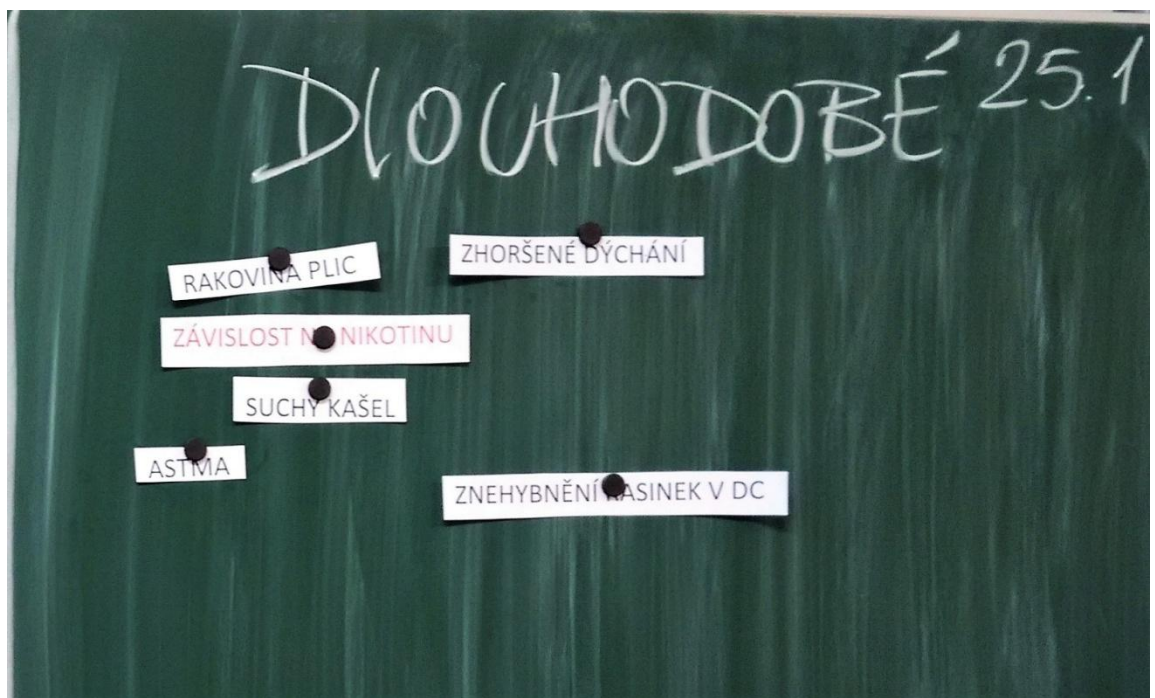 DLOUHODOBÉ 25.1
RAKOVINA PLIC
ZHORŠENÉ DÝCHÁNÍ
ZÁVISLOST NA NIKOTINU
SUCHÝ KAŠEL
ASTMA
ZNEHYBNĚNÍ ŘASINEK V DC